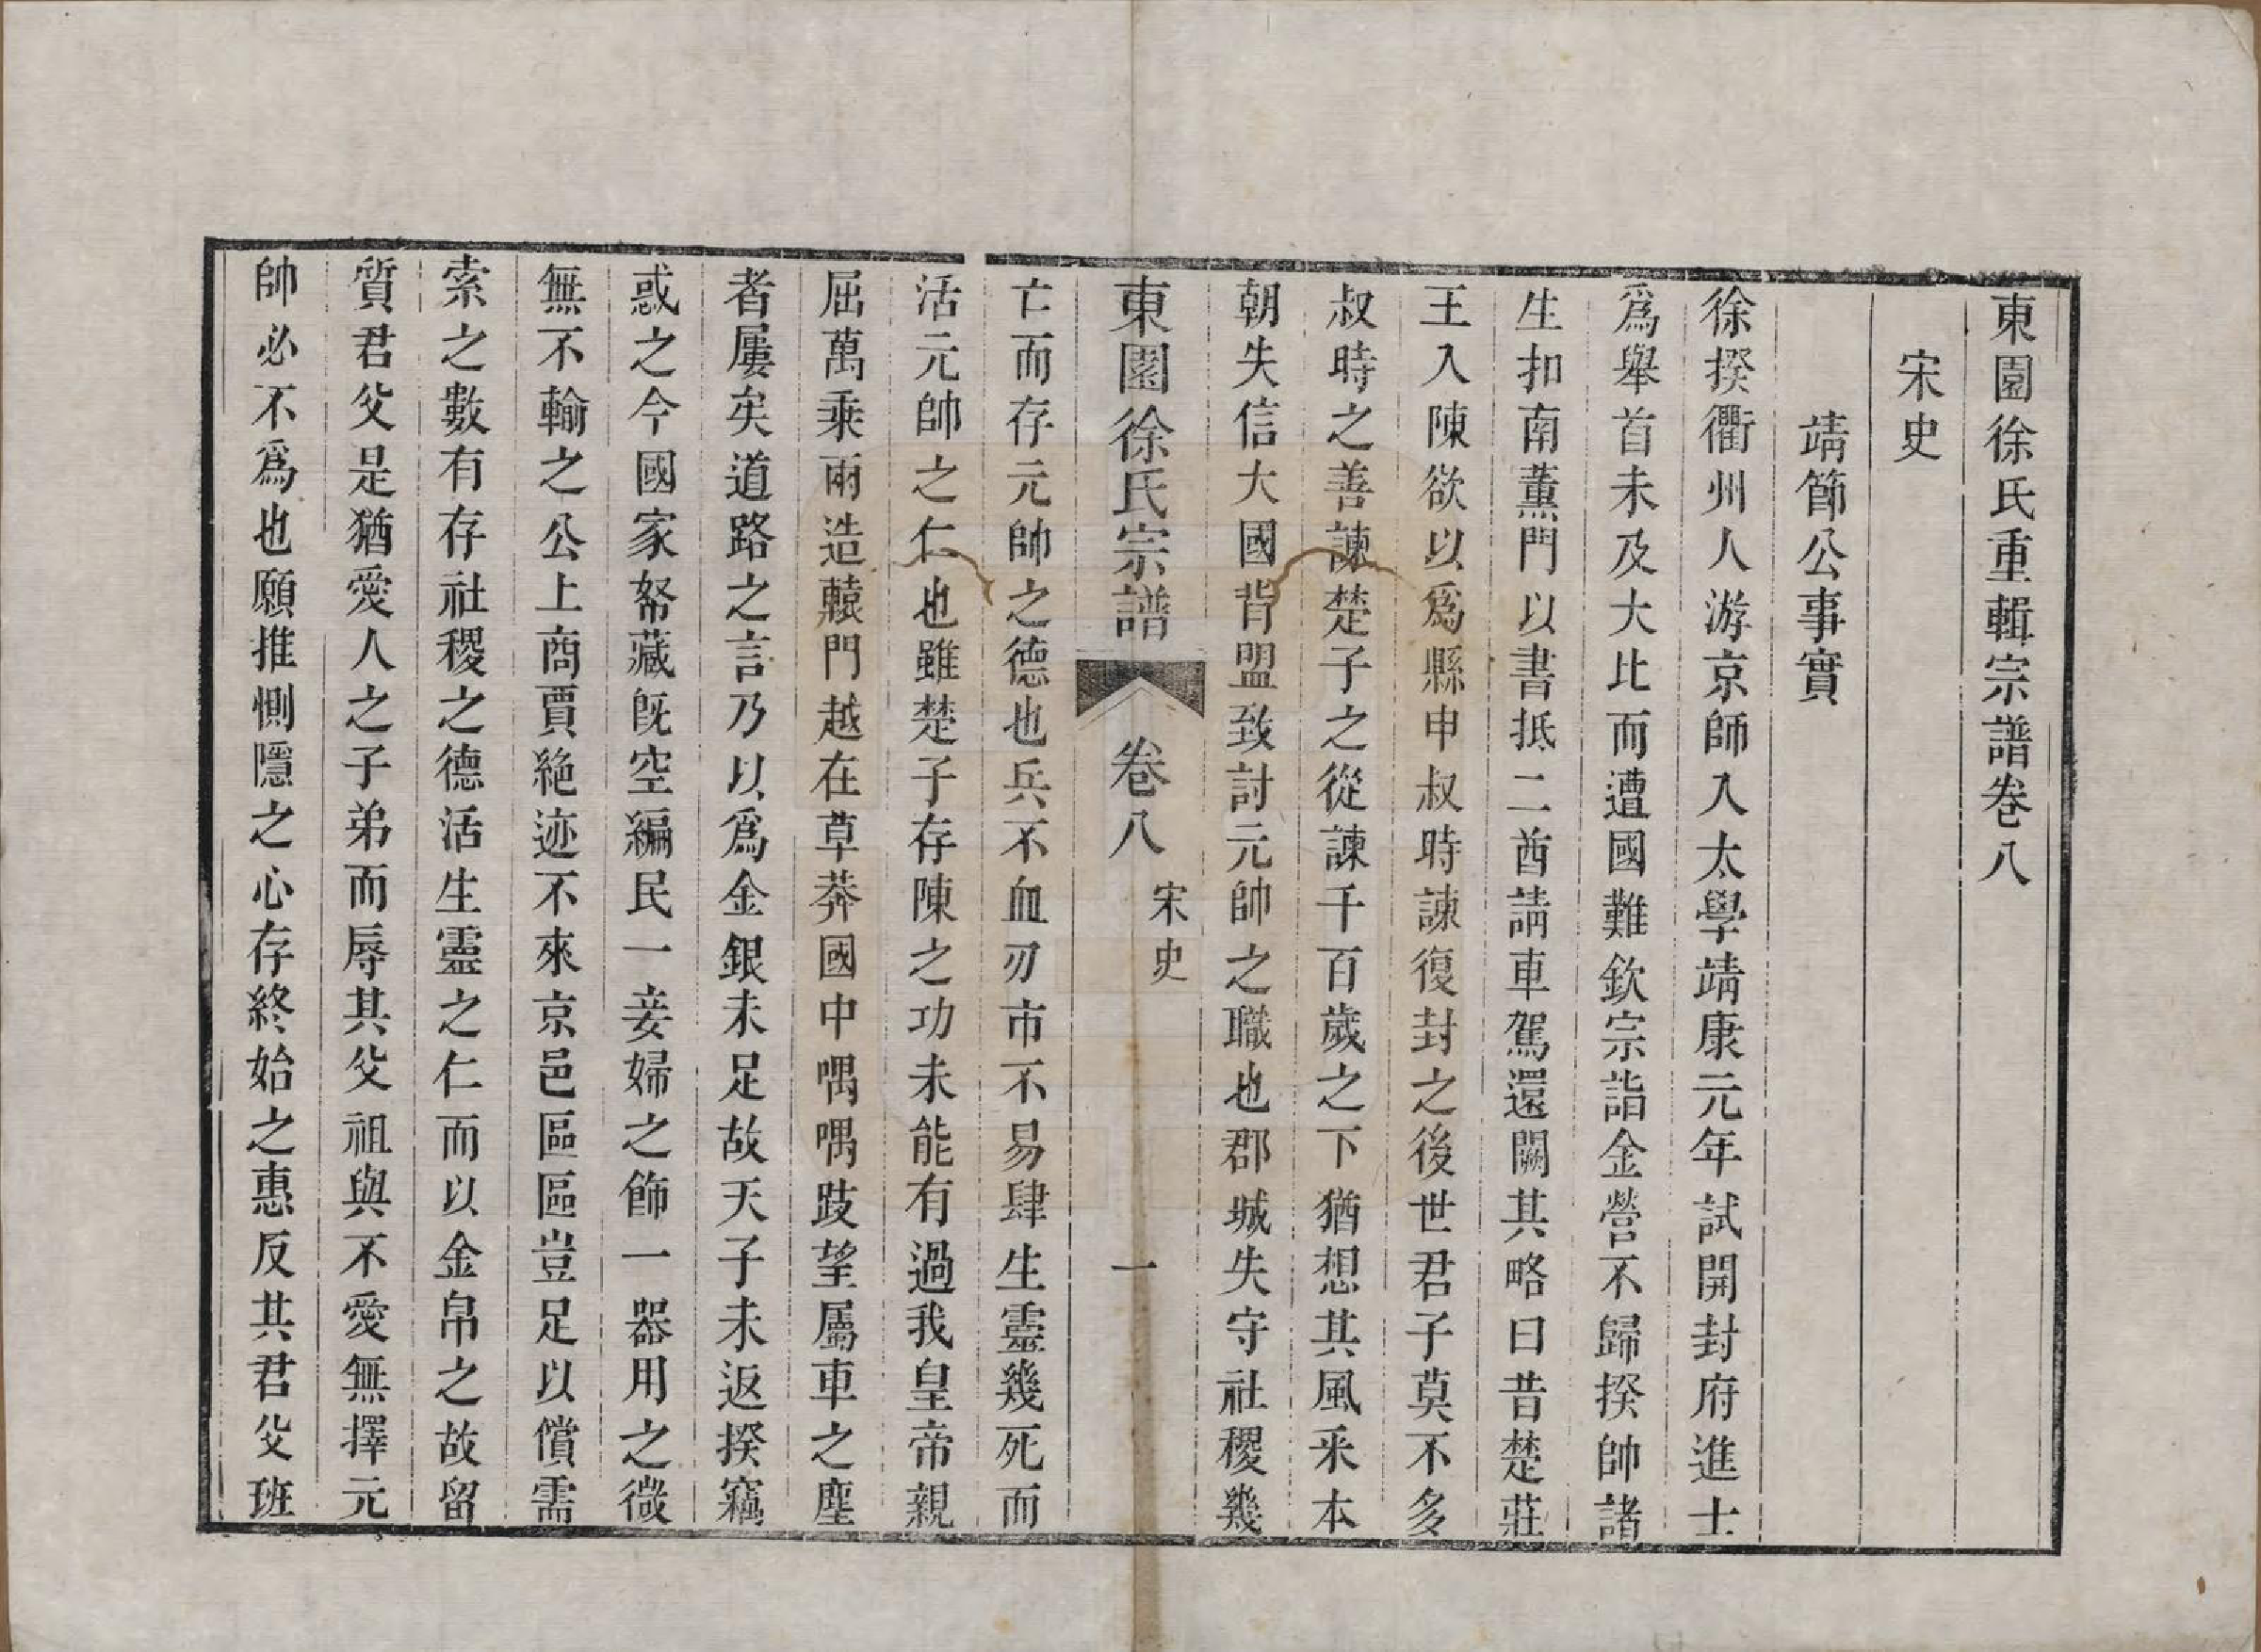 東園徐氏重輯宗譜卷八
宋史
靖節公事實
徐揆衢州人游京師入太學靖康元年試開封府進士
爲舉首未及大比而遭國難欽宗詣金營不歸揆帥諸
生扣南薰門以書抵二酋請車駕還闕其略曰昔楚莊
王入陳欲以爲縣申叔時諫復封之後世君子莫不多
叔時之善諫楚子之從諫千百歲之下猶想其風采本
朝失信大國背盟致討元帥之職也郡城失守社稷幾
東園徐氏宗譜 卷八 宋史 一
亡而存元帥之德也兵不血刃市不易肆生靈幾死而
活元帥之仁也雖楚子存陳之功未能有過我皇帝親
屈萬乘兩造轅門越在草莽國中喁喁跂望屬車之塵
者屢矣道路之言乃以爲金銀未足故天子未返揆竊
惑之今國家帑藏旣空編民一妾婦之飾一器用之微
無不輸之公上商賈絶迹不來京邑區區豈足以償需
索之數有存社稷之德活生靈之仁而以金帛之故留
質君父是猶愛人之子弟而辱其父祖與不愛無擇元
帥必不爲也願推惻隱之心存終始之惠反其君父班